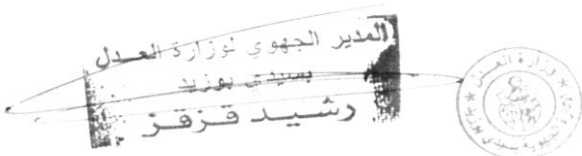 المدير الجهوي لوزارة العدل
بسيدي بوزيد
رشيد قزقز
وزارة العدل